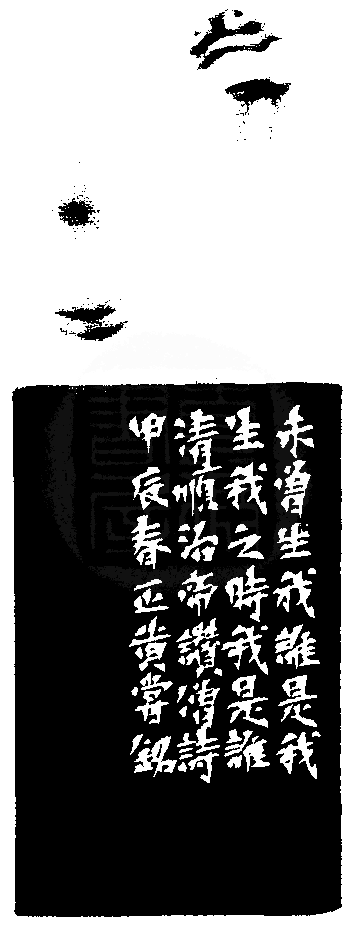 未曾生我誰是我
生我之時我是誰
清順治帝讚僧詩
甲辰春正黄嘗銘